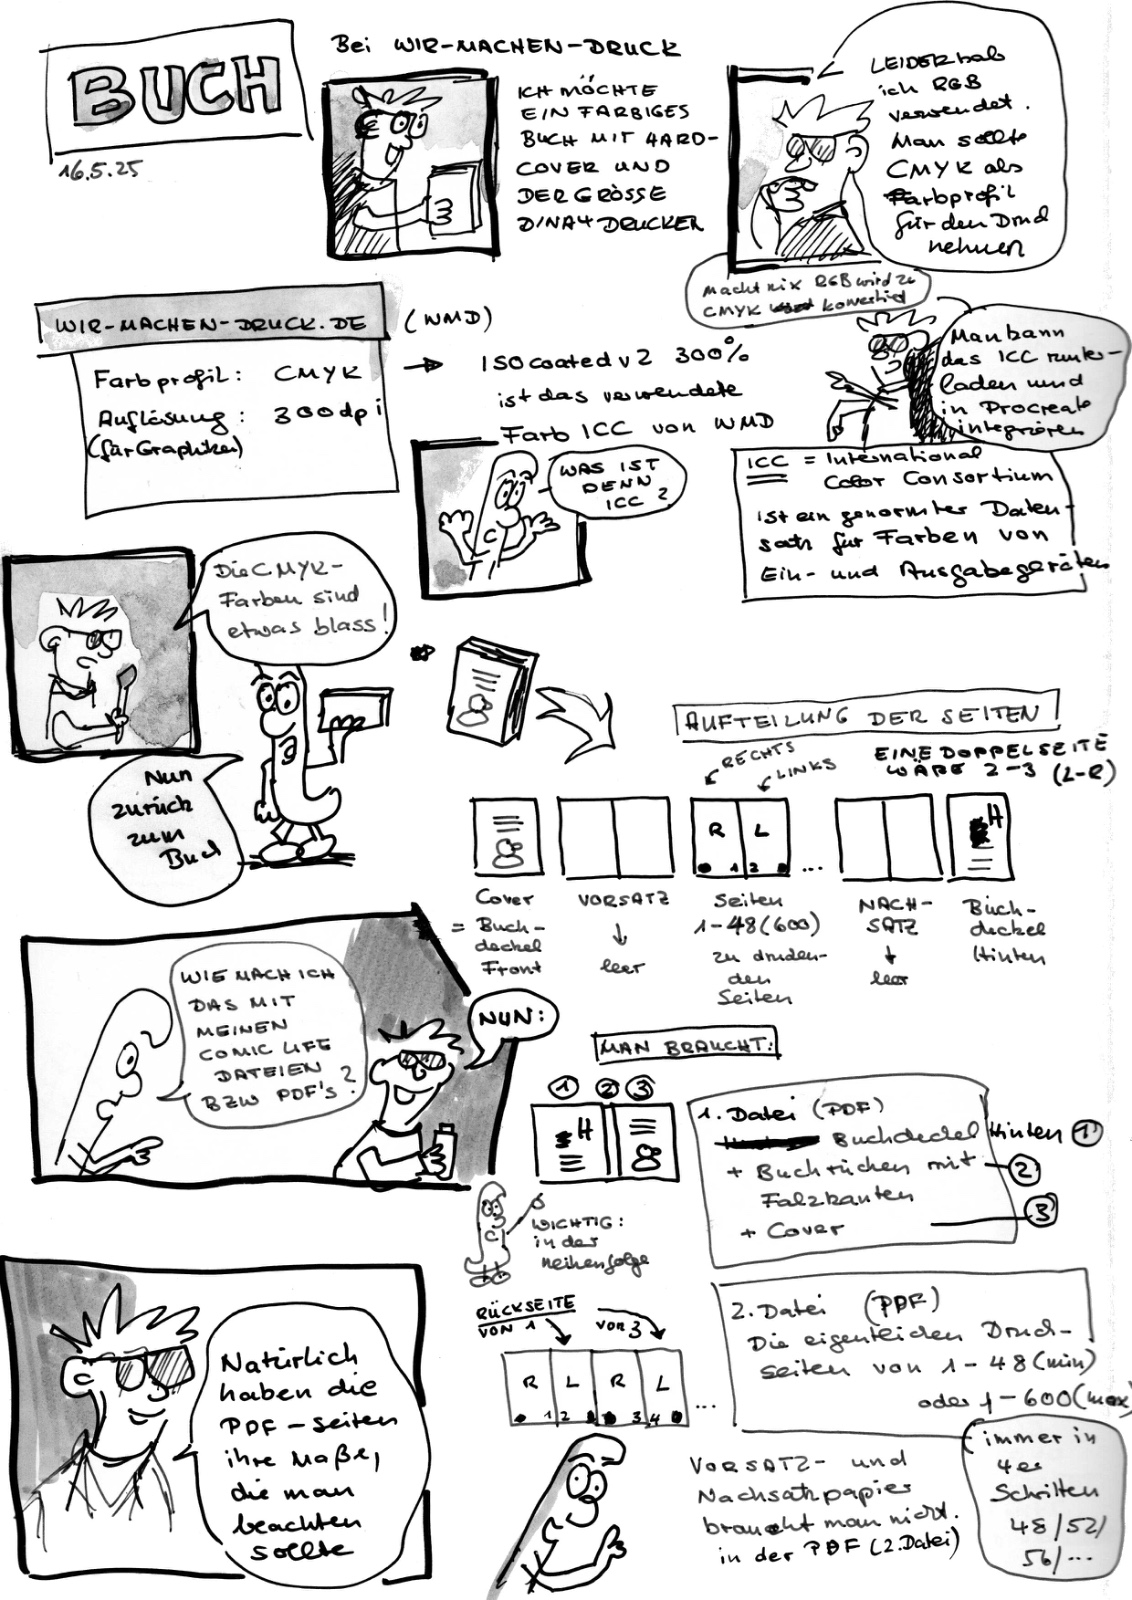 BUCH
16.5.25
Bei WIR-MACHEN-DRUCK
ICH MÖCHTE
EIN FARBIGES
BUCH MIT HARD-
COVER UND
DER GRÖSSE
DINA4 DRUCKEN
LEIDER hab
ich RGB
verwendet.
Man sollte
CMYK als
Farbprofil
für den Druck
nehmen
Macht nix RGB wird zu
CMYK konvertiert
Man kann
das ICC runter-
laden und
in Procreate
integrieren
WIR-MACHEN-DRUCK.DE
(WMD)
Farbprofil: CMYK
Auflösung: 300dpi
(für Graphiken)
→ ISOcoated v2 300%
ist das verwendete
Farb ICC von WMD
WAS IST
DENN
ICC?
ICC = International
Color Consortium
ist ein genormter Daten-
satz für Farben von
Ein- und Ausgabegeräten
Die CMYK-
Farben sind
etwas blass!
Nun
zurück
zum
Buch
AUFTEILUNG DER SEITEN
RECHTS
LINKS
EINE DOPPELSEITE
WÄRE 2-3 (L-R)
R L
1 2
...
H
Cover
= Buch-
deckel
Front
VORSATZ
↓
leer
Seiten
1-48(600)
zu drucken-
den
Seiten
NACH-
SATZ
↓
leer
Buch-
deckel
Hinten
WIE MACH ICH
DAS MIT
MEINEN
COMIC LIFE
DATEIEN
BZW PDF's?
NUN:
MAN BRAUCHT:
1 2 3
H
WICHTIG:
in der
Reihenfolge
1. Datei (PDF)
Buchdeckel Hinten 1
+ Buchrücken mit 2
Falzkanten
+ Cover 3
RÜCKSEITE
VON 1 von 3
R L R L
1 2 3 4
...
2. Datei (PDF)
Die eigentlichen Druck-
seiten von 1-48(min)
oder 1-600(max)
immer in
4er
Schritten
48/52/
56/...
VORSATZ- und
Nachsatzpapier
braucht man nicht.
in der PDF (2.Datei)
Natürlich
haben die
PDF-Seiten
ihre Maße,
die man
beachten
sollte